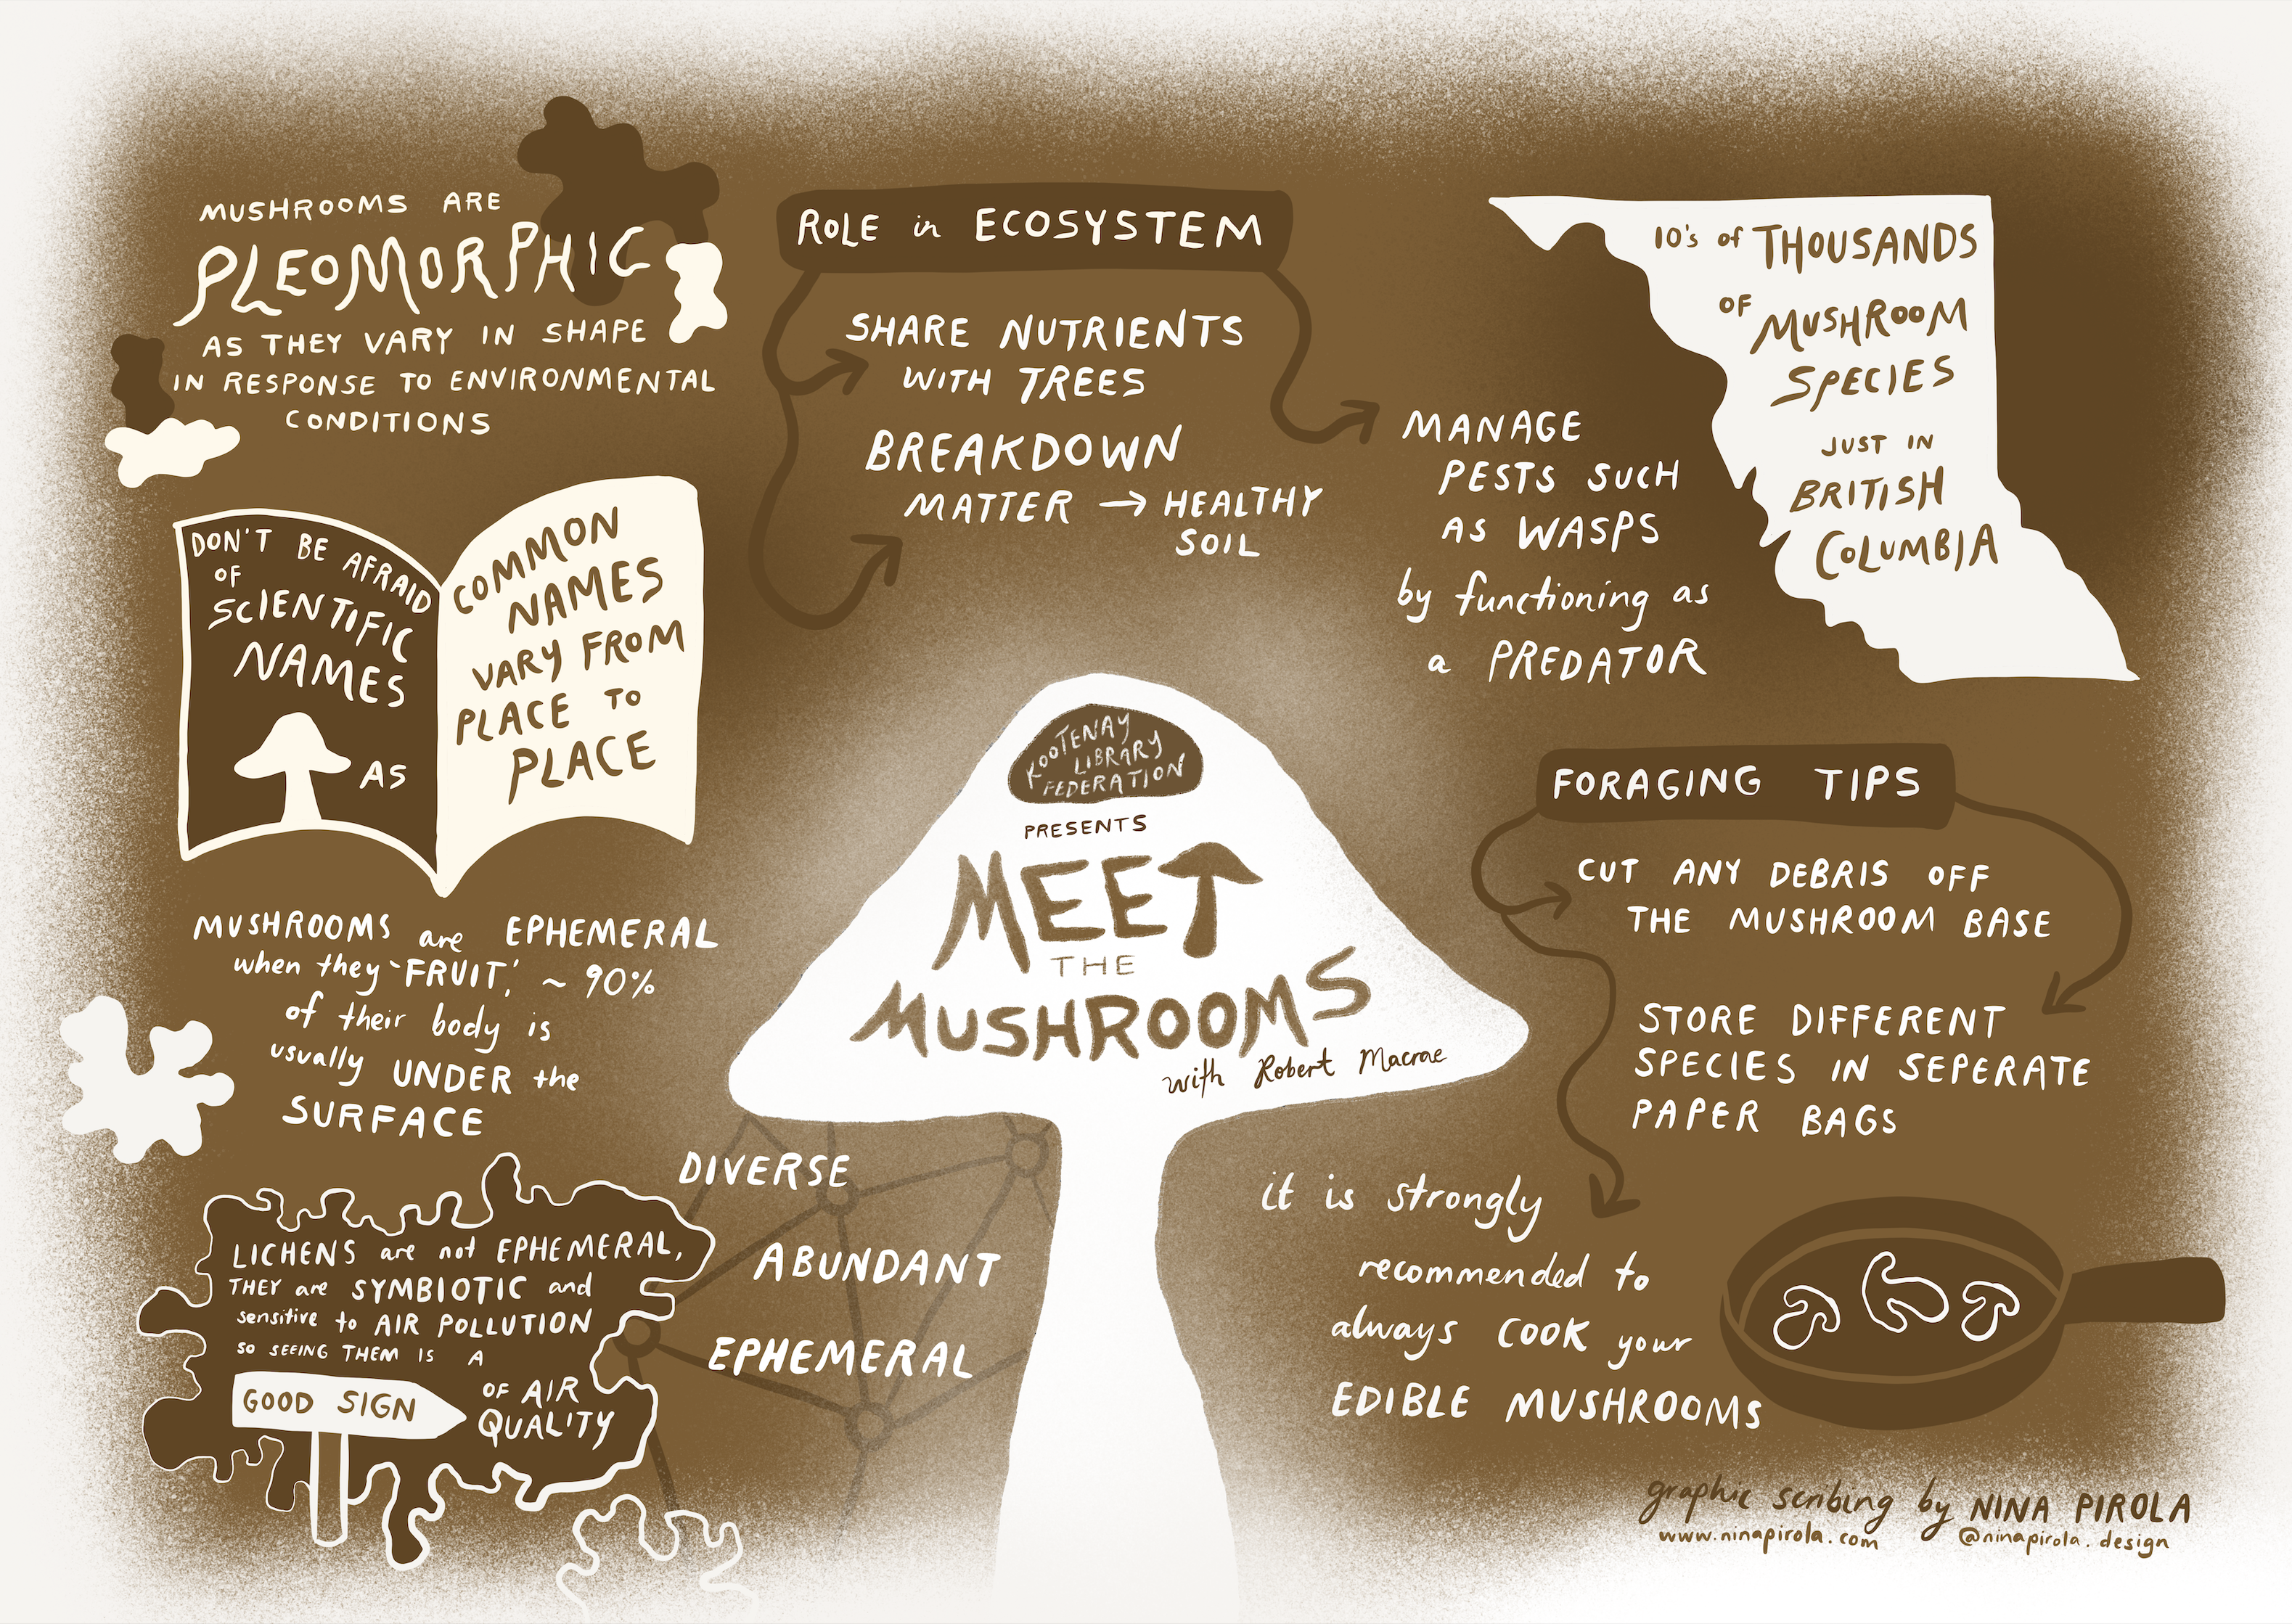 MUSHROOMS ARE
PLEOMORPHIC
AS THEY VARY IN SHAPE
IN RESPONSE TO ENVIRONMENTAL
CONDITIONS
DON'T BE AFRAID
OF
SCIENTIFIC
NAMES
AS
COMMON
NAMES
VARY FROM
PLACE TO
PLACE
MUSHROOMS are EPHEMERAL
when they 'FRUIT', ~ 90%
of their body is
usually UNDER the
SURFACE
LICHENS are not EPHEMERAL,
THEY are SYMBIOTIC and
sensitive to AIR POLLUTION
SO SEEING THEM IS A
GOOD SIGN
OF AIR
QUALITY
ROLE in ECOSYSTEM
SHARE NUTRIENTS
WITH TREES
BREAKDOWN
MATTER → HEALTHY
SOIL
MANAGE
PESTS SUCH
AS WASPS
by functioning as
a PREDATOR
10's of THOUSANDS
OF MUSHROOM
SPECIES
JUST IN
BRITISH
COLUMBIA
KOOTENAY
LIBRARY
FEDERATION
PRESENTS
MEET
THE
MUSHROOMS
with Robert Macrae
DIVERSE
ABUNDANT
EPHEMERAL
FORAGING TIPS
CUT ANY DEBRIS OFF
THE MUSHROOM BASE
STORE DIFFERENT
SPECIES IN SEPERATE
PAPER BAGS
it is strongly
recommended to
always COOK your
EDIBLE MUSHROOMS
graphic scribing by NINA PIROLA
www.ninapirola.com @ninapirola.design